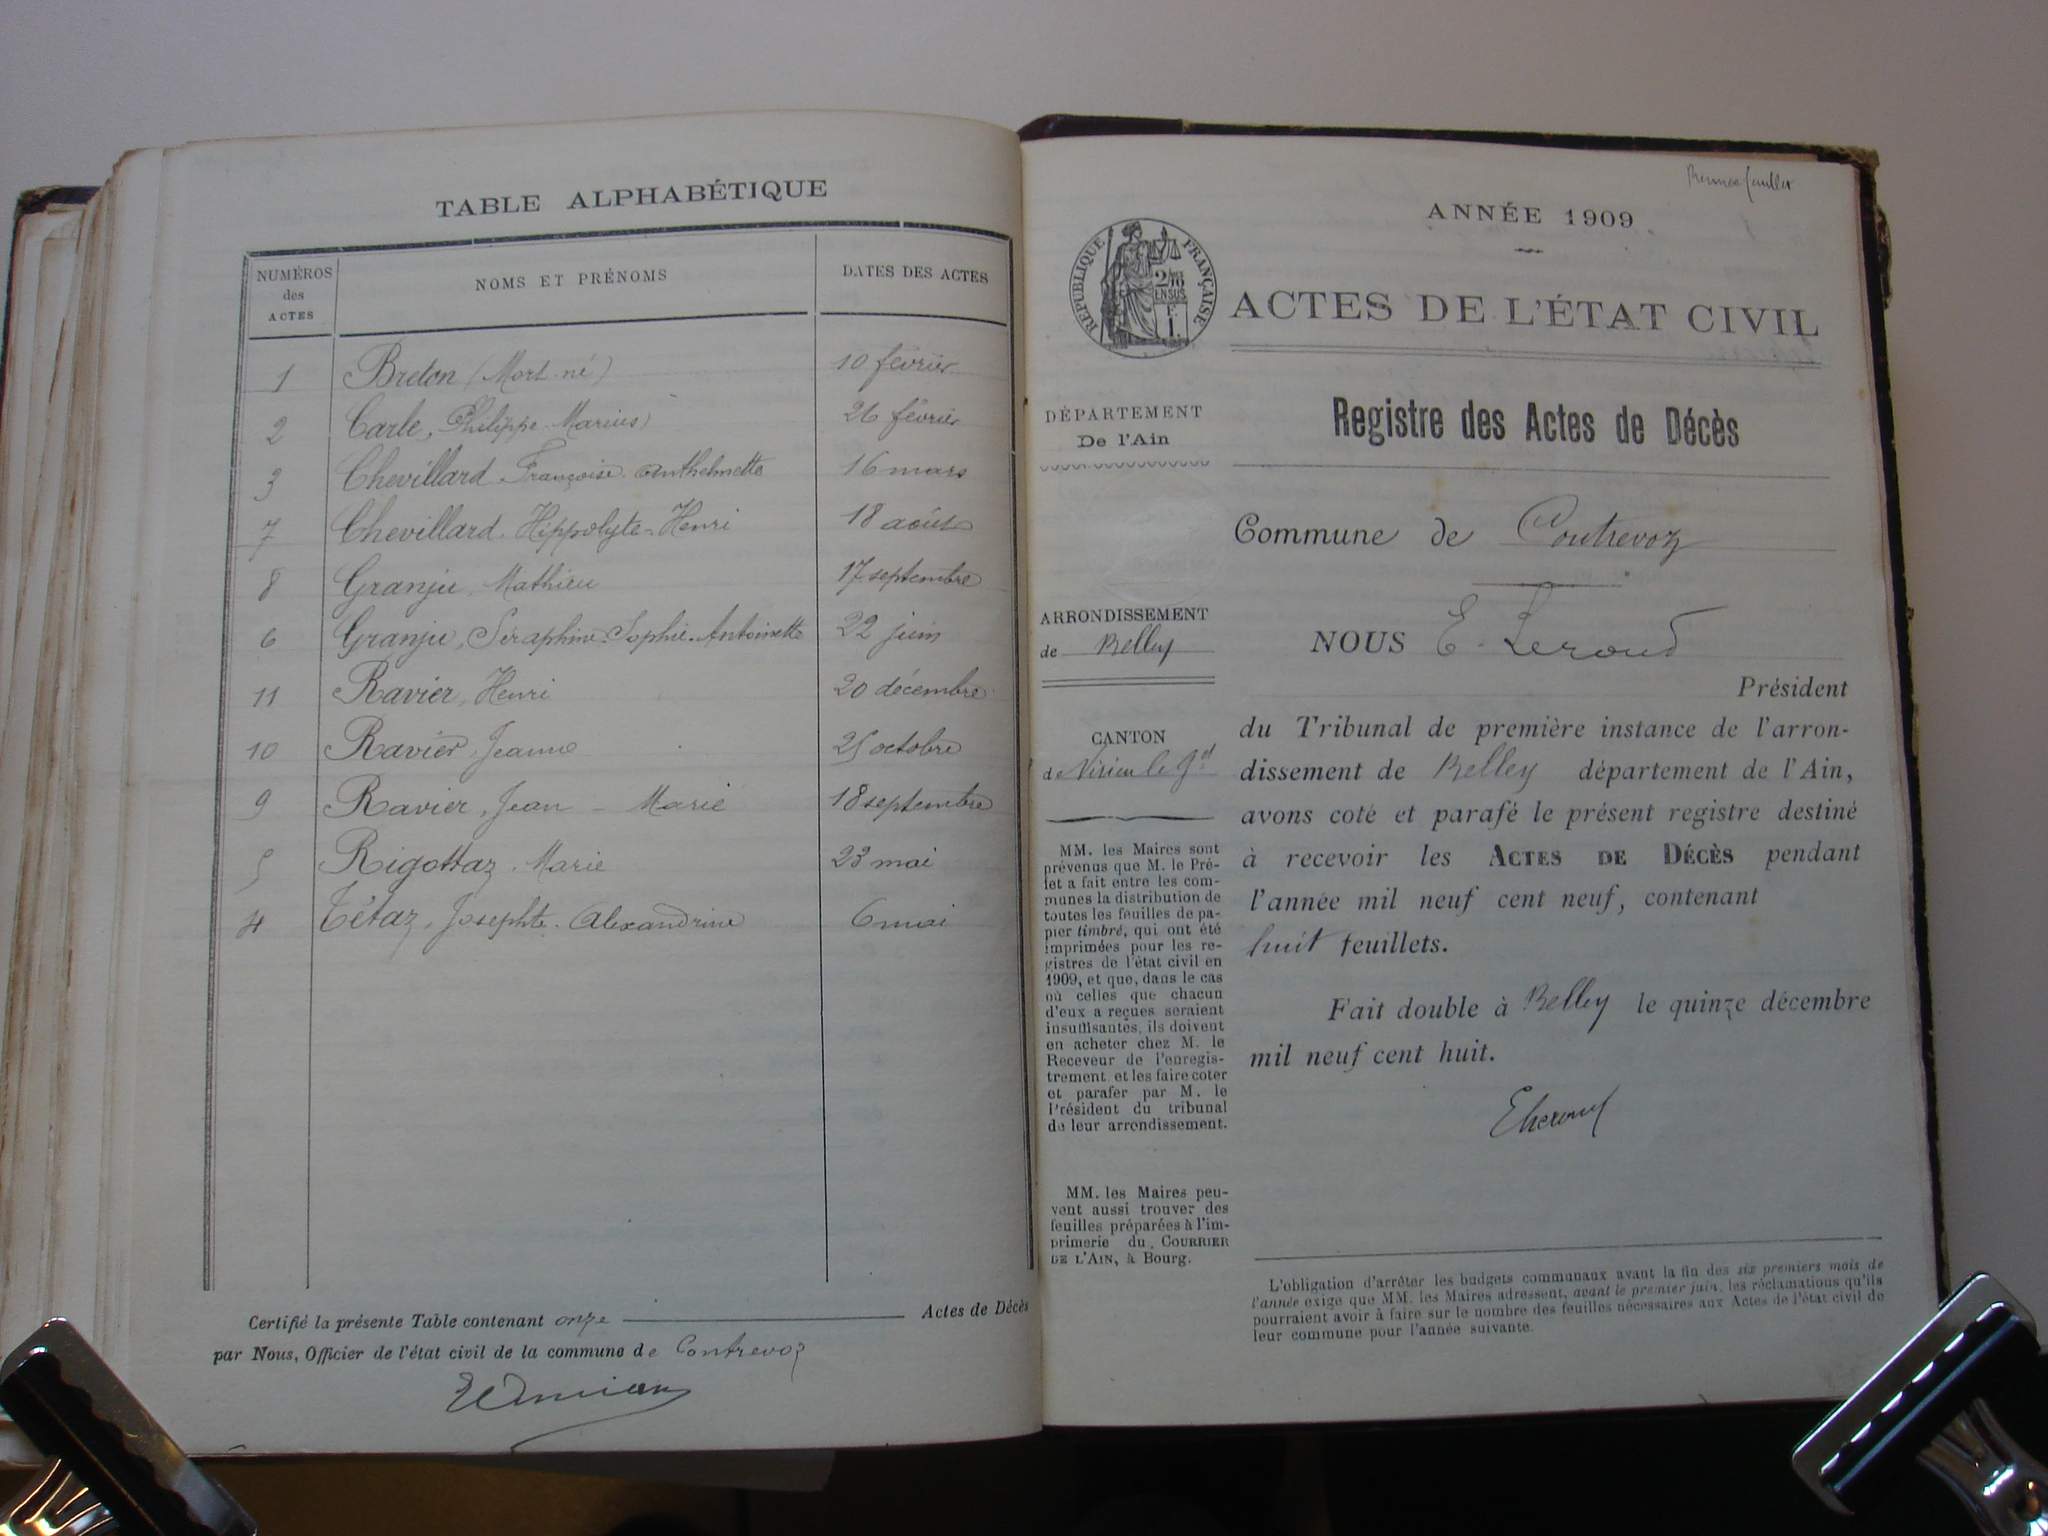 TABLE ALPHABÉTIQUE
NUMÉROS des ACTES NOMS ET PRÉNOMS DATES DES ACTES
1 Breton (Mort-né) 10 février
2 Carle, Philippe-Marius 26 février
3 Chevillard Françoise Anthelmette 16 mars
7 Chevillard. Hippolyte-Henri 18 août
8 Granju, Mathieu 17 septembre
6 Granju, Séraphine-Sophie-Antoinette 22 juin
11 Ravier, Henri 20 décembre
10 Ravier, Jeanne 25 octobre
9 Ravier, Jean-Marie 18 septembre
5 Rigottaz, Marie 23 mai
4 Tétaz, Josephte-Alexandrine 6 mai
Certifié la présente Table contenant onze Actes de Décès
par Nous, Officier de l'état civil de la commune de Contrevoz
Premier feuillet
ANNÉE 1909
RÉPUBLIQUE FRANÇAISE
2/10 EN SUS
F. 1.
ACTES DE L'ÉTAT CIVIL
Registre des Actes de Décès
DÉPARTEMENT
De l'Ain
Commune de Contrevoz
ARRONDISSEMENT
de Belley
CANTON
de Virieu le Gd
MM. les Maires sont
prévenus que M. le Pré-
fet a fait entre les com-
munes la distribution de
toutes les feuilles de pa-
pier timbré, qui ont été
imprimées pour les re-
gistres de l'état civil en
1909, et que, dans le cas
où celles que chacun
d'eux a reçues seraient
insuffisantes, ils doivent
en acheter chez M. le
Receveur de l'enregis-
trement et les faire coter
et parafer par M. le
Président du tribunal
de leur arrondissement.
MM. les Maires peu-
vent aussi trouver des
feuilles préparées à l'im-
primerie du COURRIER
DE L'AIN, à Bourg.
NOUS E. Leroud
Président
du Tribunal de première instance de l'arron-
dissement de Belley département de l'Ain,
avons coté et parafé le présent registre destiné
à recevoir les ACTES DE DÉCÈS pendant
l'année mil neuf cent neuf, contenant
huit feuillets.
Fait double à Belley le quinze décembre
mil neuf cent huit.
L'obligation d'arrêter les budgets communaux avant la fin des six premiers mois de
l'année exige que MM. les Maires adressent, avant le premier juin, les réclamations qu'ils
pourraient avoir à faire sur le nombre des feuilles nécessaires aux Actes de l'état civil de
leur commune pour l'année suivante.